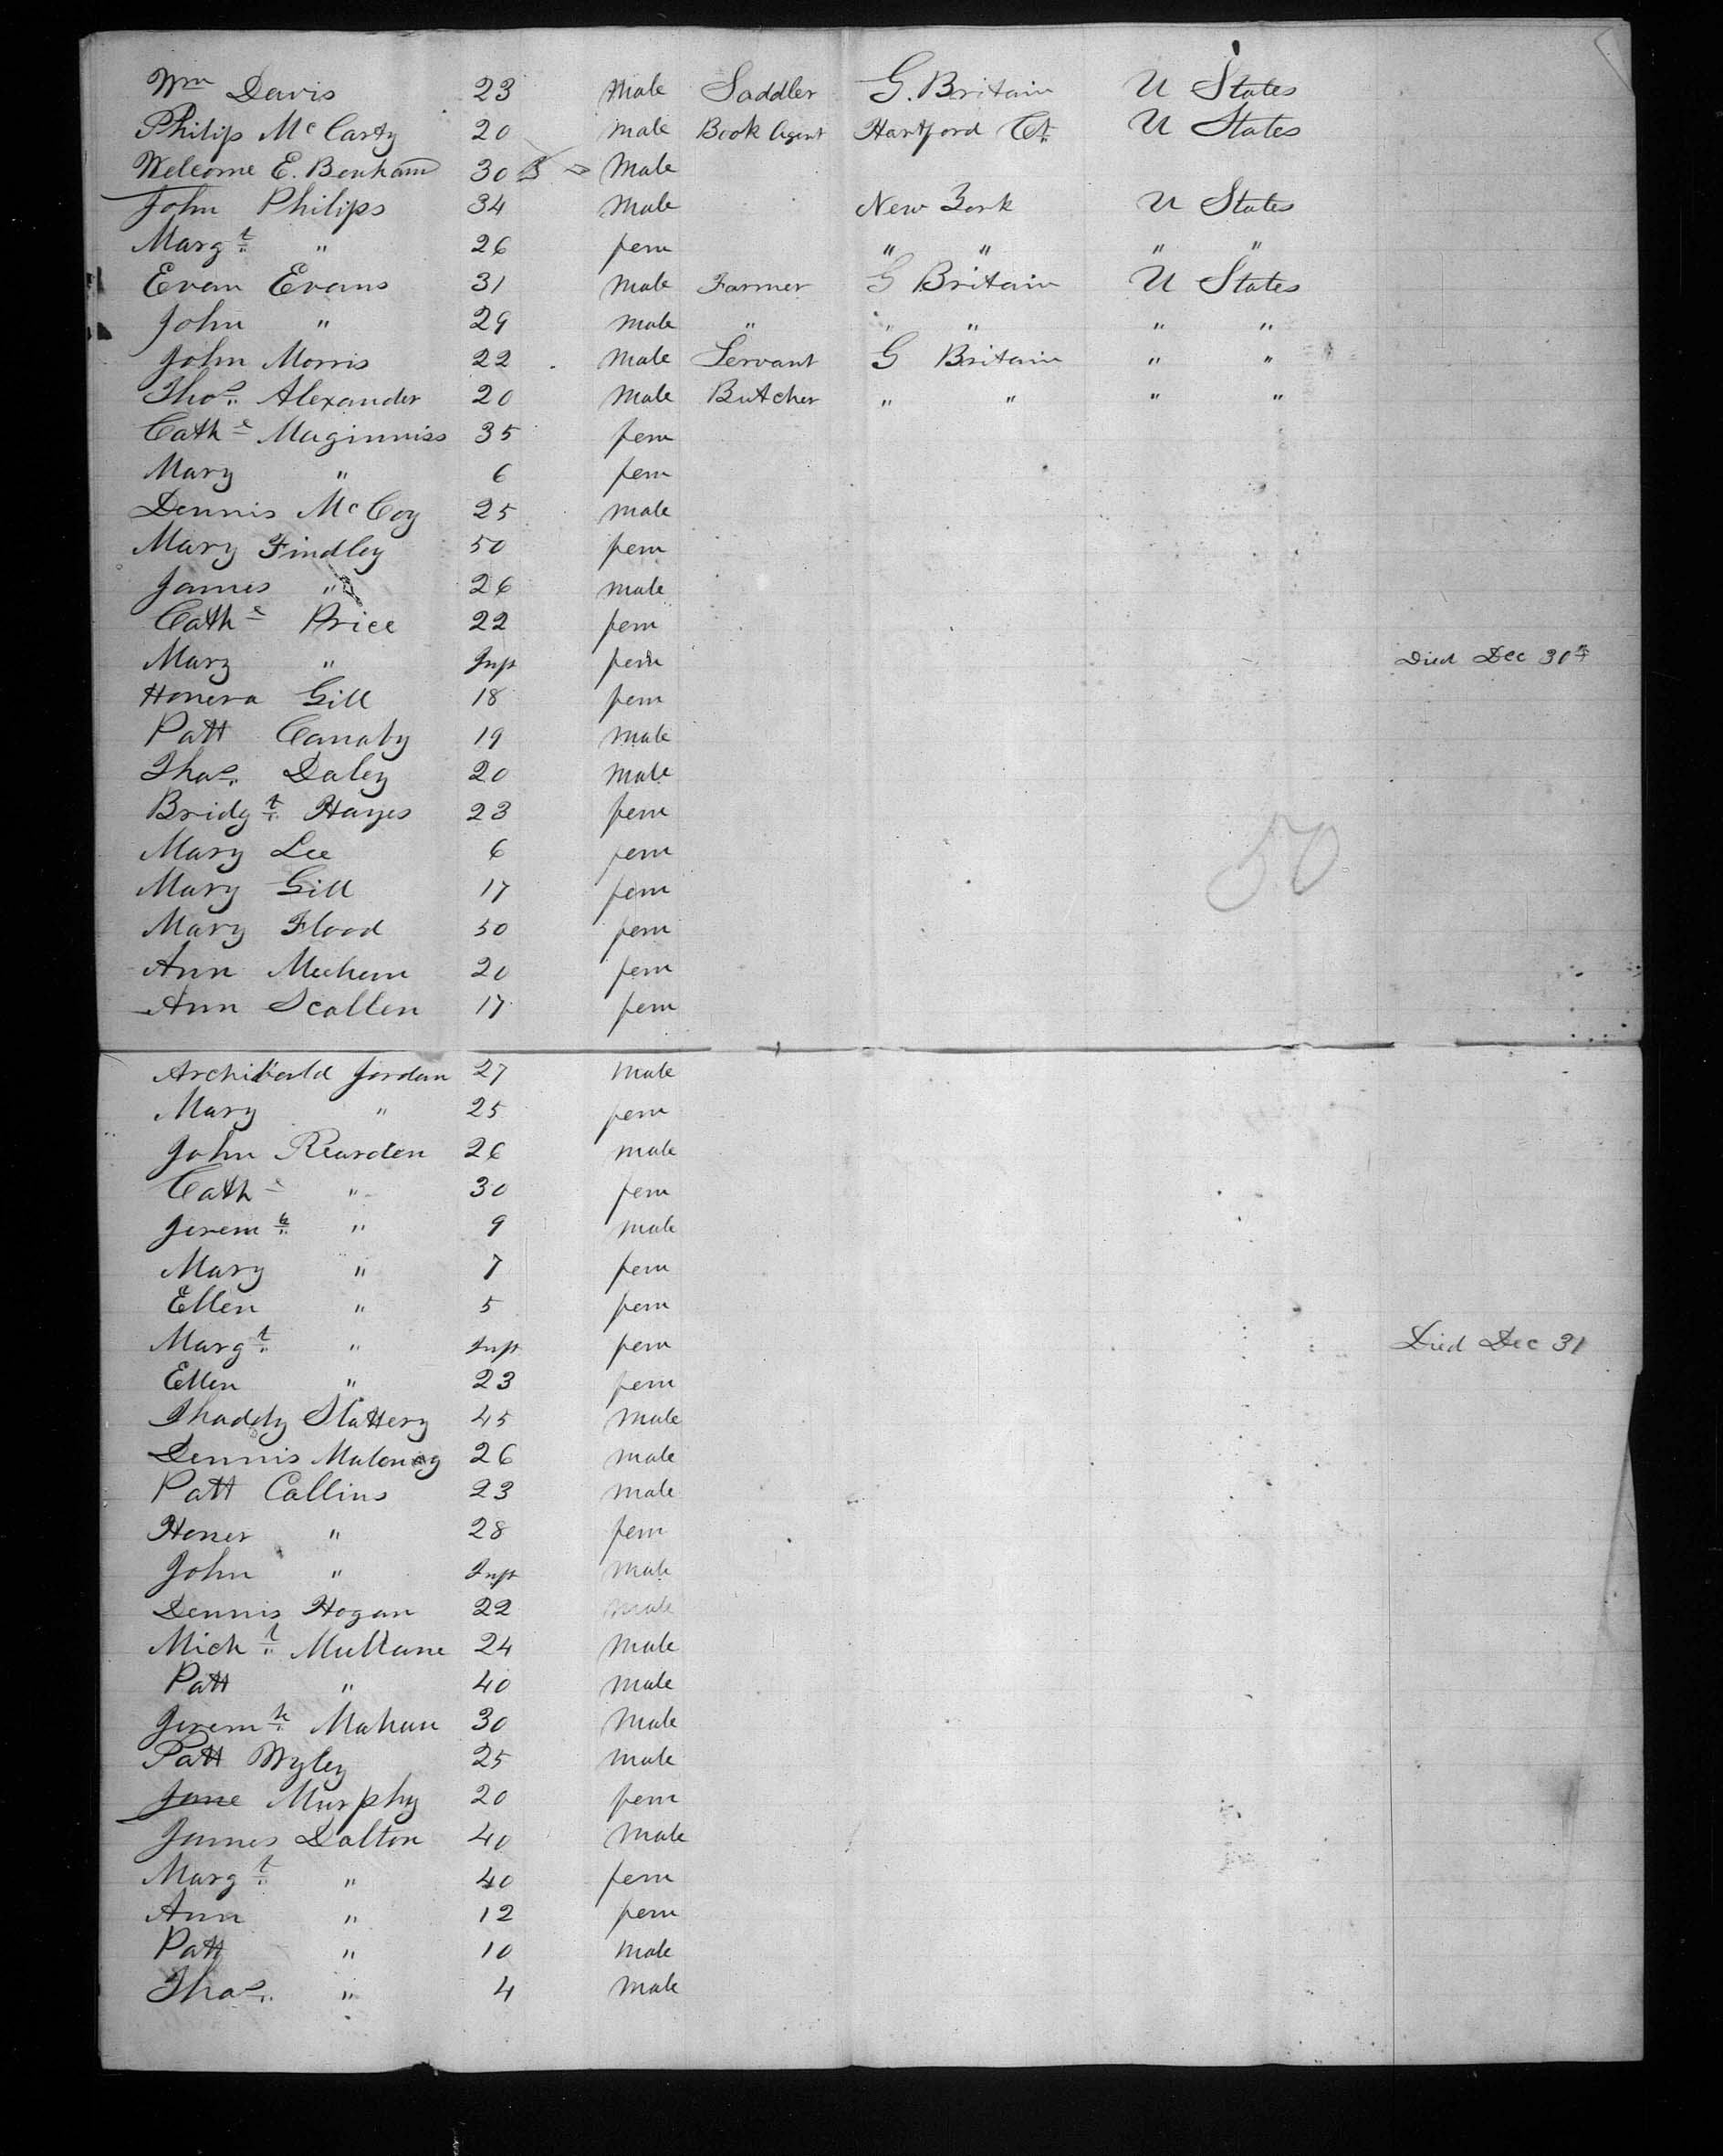 Wm Davis 23 Male Saddler G. Britain U States
Philip Mc Carty 20 Male Book Agent Hartford Ct. U States
Welcome E. Benham 30 Male
John Philips 34 Male New York U States
Margt " 26 fem " " " "
Evan Evans 31 Male Farmer G Britain U States
John " 29 Male " " " " "
John Morris 22 Male Servant G Britain " "
Thos. Alexander 20 Male Butcher " " " "
Cathe Maginniss 35 fem
Mary " 6 fem
Dennis McCoy 25 Male
Mary Findley 50 fem
James " 26 Male
Cathe Price 22 fem
Mary " Inft fem Died Dec 30th
Honera Gill 18 fem
Patt Canaby 19 Male
Thos. Daley 20 Male
Bridgt Hayes 23 fem
Mary Lee 6 fem
50
Mary Gill 17 fem
Mary Flood 50 fem
Ann Meehan 20 fem
Ann Scallen 17 fem
Archibald Jordan 27 Male
Mary " 25 fem
John Rearden 26 Male
Cathe " 30 fem
Jeremh " 9 Male
Mary " 7 fem
Ellen " 5 fem
Margt " Inft fem Died Dec 31
Ellen " 23 fem
Thaddy Slattery 45 Male
Dennis Maloney 26 Male
Patt Collins 23 Male
Honer " 28 fem
John " Inft Male
Dennis Hogan 22 Male
Michl Mullane 24 Male
Patt " 40 Male
Jeremh Mahan 30 Male
Patt Wyley 25 Male
Jane Murphy 20 fem
James Dalton 40 Male
Margt " 40 fem
Ann " 12 fem
Patt " 10 Male
Thos. " 4 Male